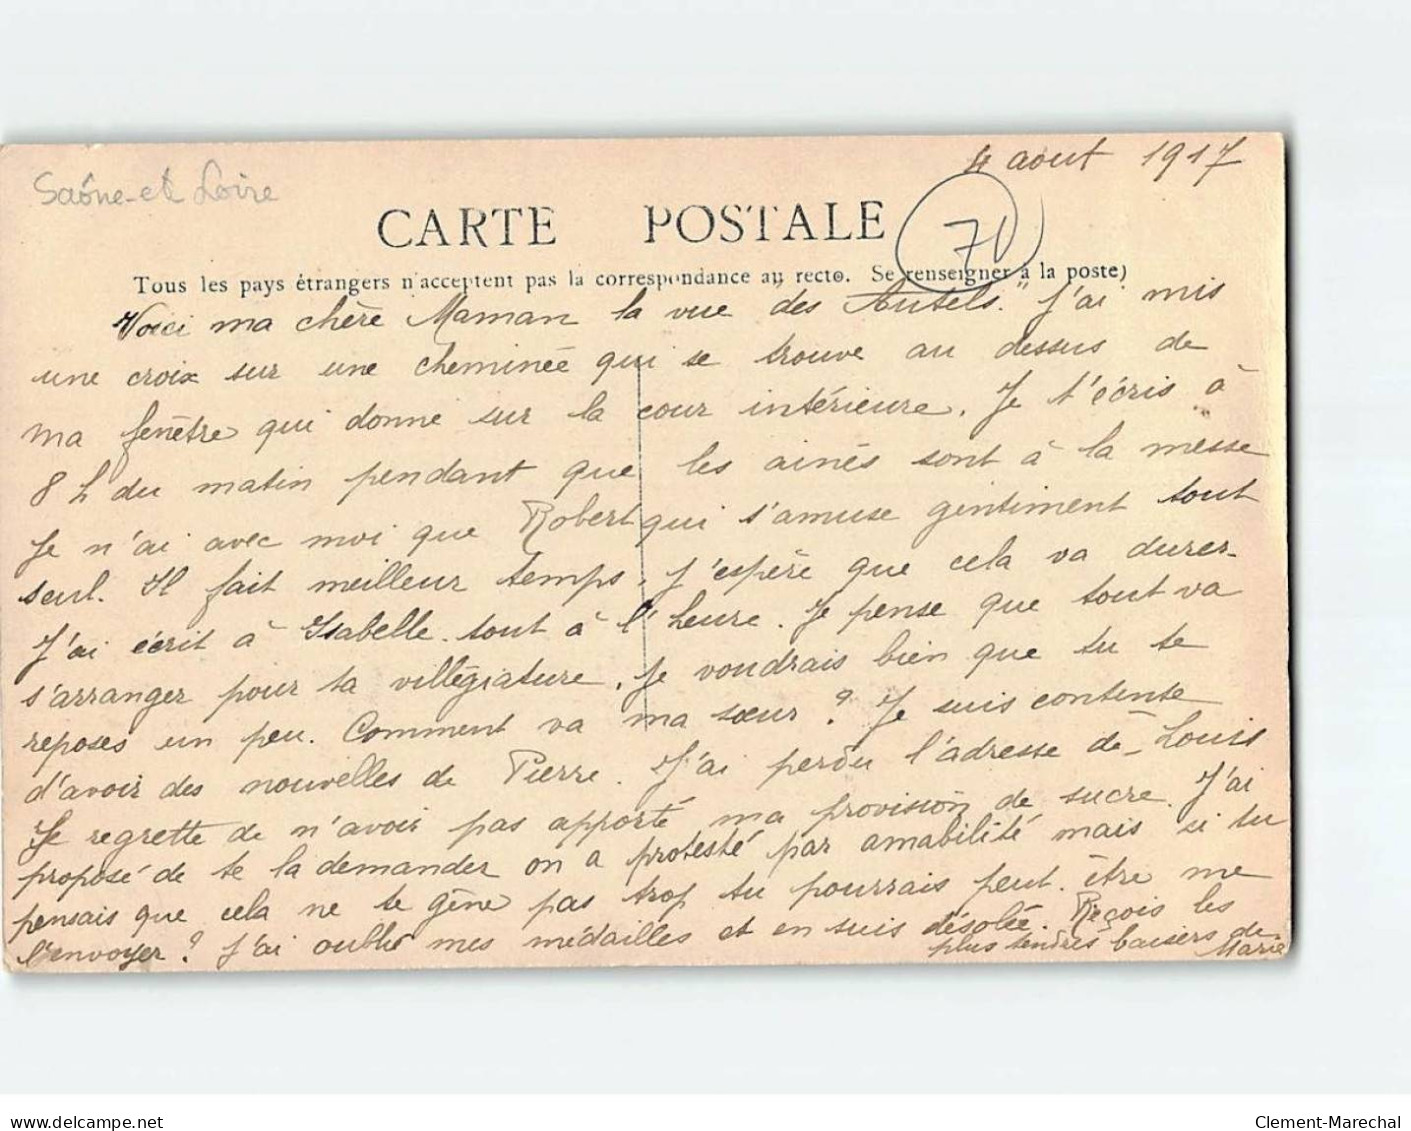 4 aout 1917
Saône-et Loire
CARTE POSTALE
71
Tous les pays étrangers n'acceptent pas la correspondance au recto. Se renseigner à la poste)
Voici ma chère Maman la vue "des Autels." J'ai mis
une croix sur une cheminée qui se trouve au dessus de
ma fenêtre qui donne sur la cour intérieure. Je t'écris à
8 h du matin pendant que les ainés sont à la messe
Je n'ai avec moi que Robert qui s'amuse gentiment tout
seul. Il fait meilleur temps, j'espère que cela va durer-
J'ai écrit à Isabelle tout à l'heure. Je pense que tout va
s'arranger pour ta villégiature, je voudrais bien que tu te
reposes un peu. Comment va ma sœur ? Je suis contente
d'avoir des nouvelles de Pierre. J'ai perdu l'adresse de Louis
Je regrette de n'avoir pas apporté ma provision de sucre. J'ai
proposé de te la demander on a protesté par amabilité mais si tu
pensais que cela ne te gêne pas trop tu pourrais peut. être me
l'envoyer ? J'ai oublié mes médailles et en suis désolée. Reçois les
plus tendres baisers de
Marie
delcampe.net
Clement-Marechal